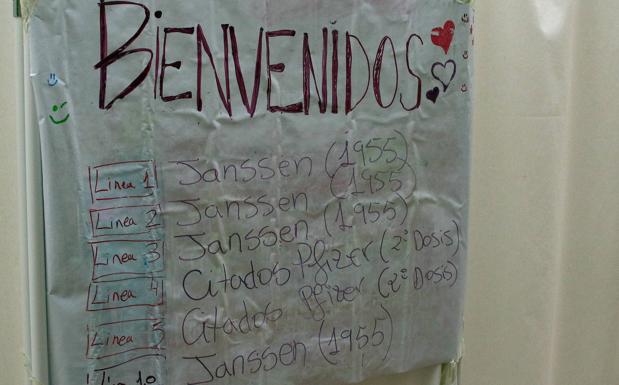 BIENVENIDOS
Linea 1 Janssen (1955)
Linea 2 Janssen (1955)
Linea 3 Janssen (1955)
Linea 4 Citados Pfizer (2º Dosis)
Linea 5 Citados Pfizer (2º Dosis)
Janssen (1955)